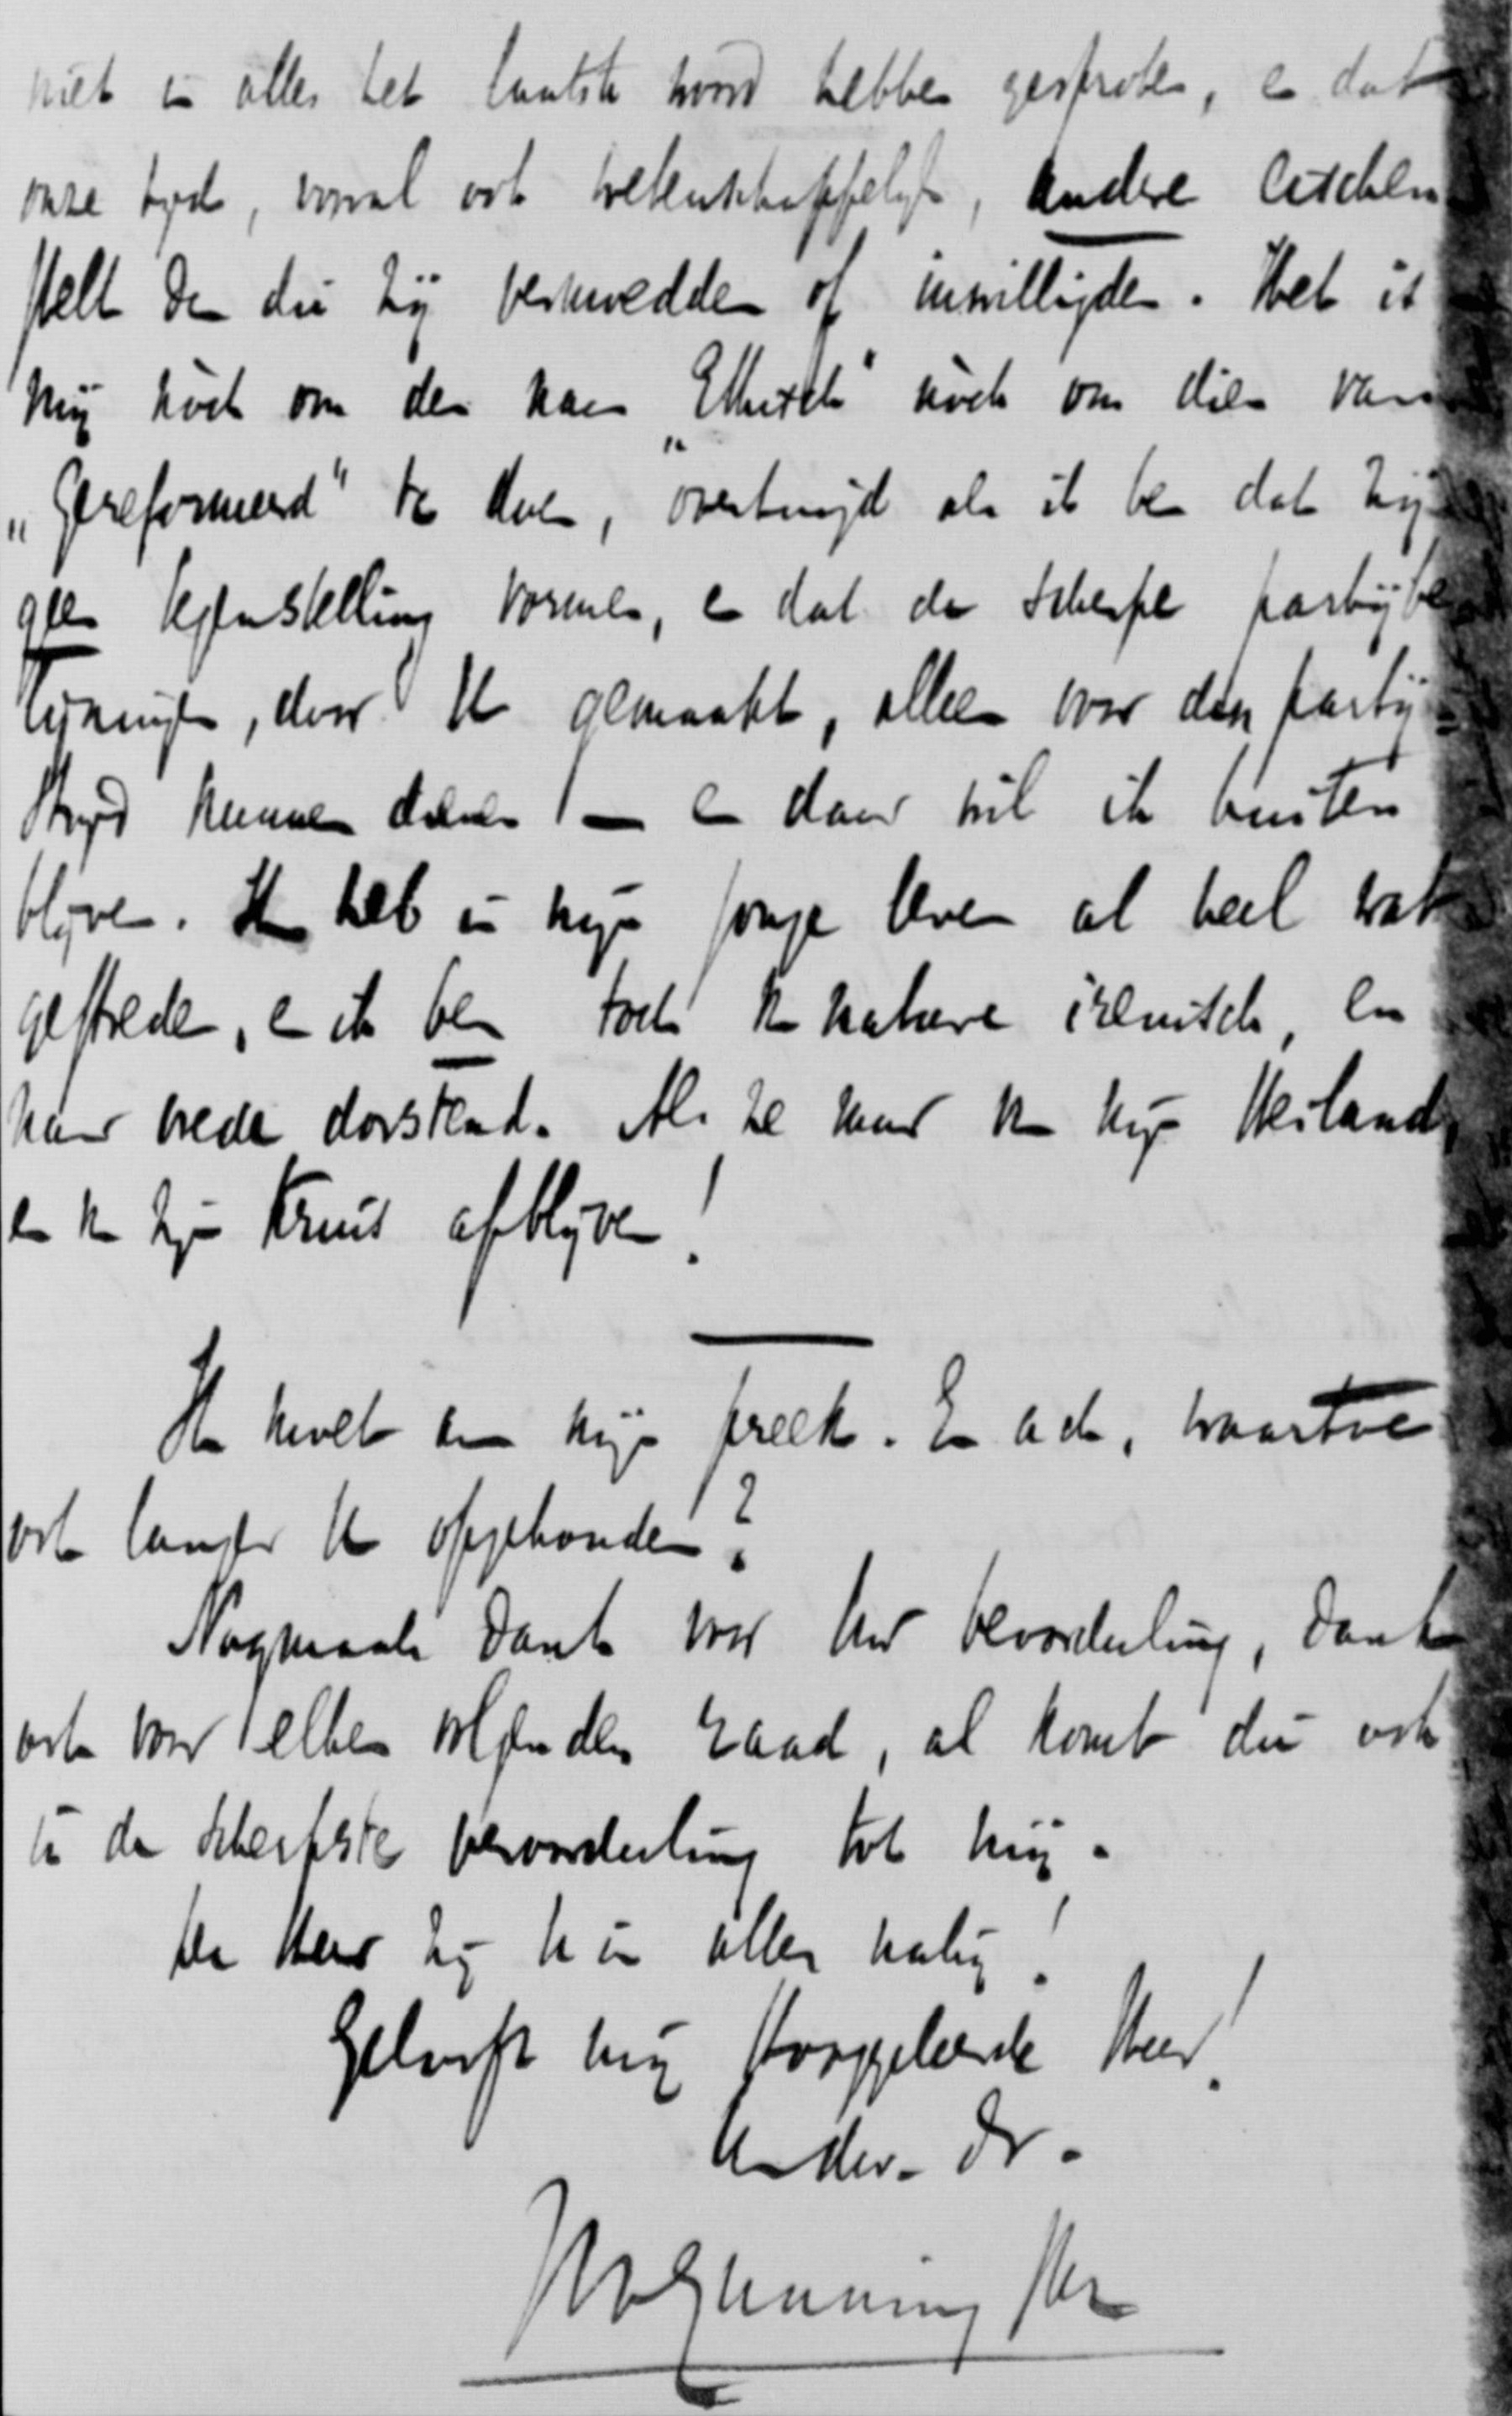 niet in alles het laatste woord hebben gesproken, en dat
onze tyd, vooral ook wetenschappelyk, andere eischen
stelt dan die zij bevredigden of inwilligden. Het is
mij noch om den naam „Ethisch" noch om dien van
„Gereformeerd" te doen, overtuigd als ik ben dat zij
geen tegenstelling vormen, en dat de scherpe partijbe
lijningen, door U gemaakt, alleen voor den partij=
stryd kunnen dienen — en daar wil ik buiten
blyven. Ik heb in mijn jonge leven al heel wat
gestreden, en ik ben toch van nature irenisch, en
naar vrede dorstend. Als ze maar van mijn Heiland,
en van zijn Kruis afblyven!
U heeft mijn preek. En ach, waartoe
ook langer U opgehouden?
Nogmaals dank voor Uw beoordeeling, dank
ook voor elken volgenden raad, al komt die ook
in de scherpste veroordeeling tot mij.
De Heer zij U in alles nabij!
Geloof mij Hooggeleerde Heer!
Uw dw. dr.
JHGunning JHz